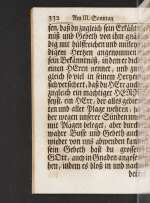 332 Am III. Sonntag
sen, daß du zugleich sein Erkänt-
nuß und Gebeth von ihm gnä-
dig mit hülfreichen und mitley-
digen Hertzen angenommen;
sein Bekänntnuß, in dem er dich
einen HErrn nennet, und zu-
gleich so viel in seinem Hertzen
sich versichert, daß du HErr auch
zugleich ein mächtiger HERR
seyst, ein HErr, der alles gebie-
ten und aller Plage wehren,
der wegen unserer Sünden uns
mit Plagen beleget, aber durch
wahre Buß und Gebeth auch
wieder von uns abwenden kan
sein Gebeth hast du grosser
GOtt, auch in Gnaden angese-
hen, indem es bloß in und nach